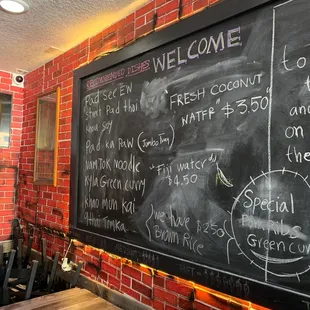 RECOMMENDED DISHES
Pad see Ew
Street Pad thai
Khao Soy
Pad ka Paw (Jumbo
namtok noodle
Kyla Green curry
Khao mun kai
WELCOME
"FRESH COCONUT
NATER" $3.50"
"Fiji water"
$4.50
we have $2.50
Brown Rice
to
and
on
the
Special
Ribs
Green curry